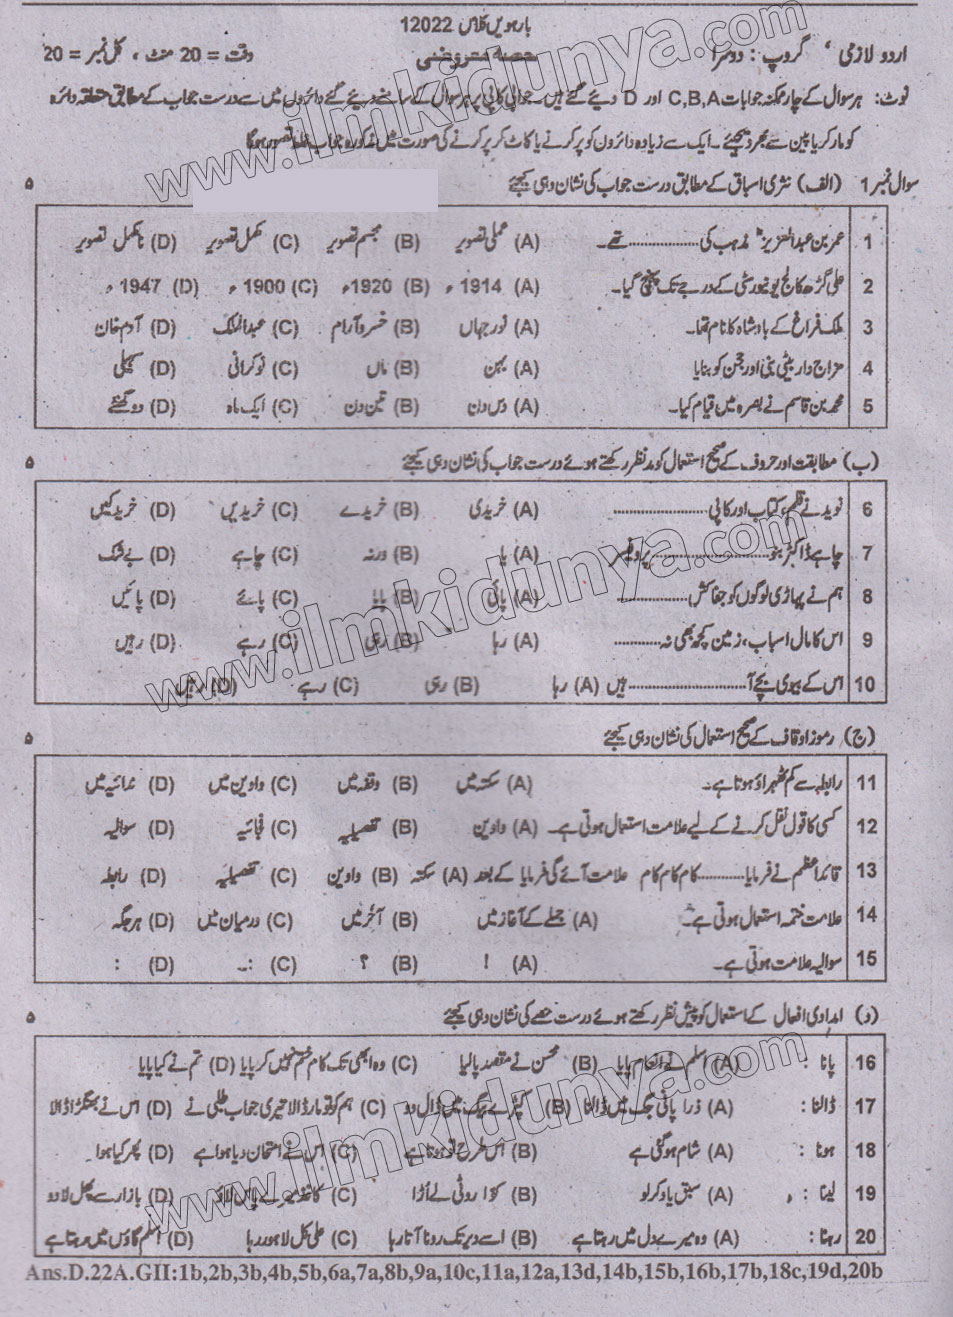 بارہویں کلاس 12022
اردو لازمی ، گروپ : دوسرا حصہ معروضی وقت = 20 منٹ ، کل نمبر = 20
نوٹ: ہر سوال کے چار ممکنہ جوابات C,B,A اور D دیئے گئے ہیں۔ جوابی کاپی پر ہر سوال کے سامنے دیئے گئے دائروں میں سے درست جواب کے مطابق متعلقہ دائرہ
کو مارکر یا پین سے بھر دیجئے۔ ایک سے زیادہ دائروں کو پر کرنے یا کاٹ کر پر کرنے کی صورت میں مذکورہ جواب غلط تصور ہوگا
سوال نمبر 1 (الف) نثری اسباق کے مطابق درست جواب کی نشان دہی کیجئے ۵
1 عمر بن عبدالعزیزؒ مذہب کی .......... تھے۔ (A) عملی تصویر (B) مجسم تصویر (C) مکمل تصویر (D) نامکمل تصویر
2 علی گڑھ کالج یونیورسٹی کے درجے تک پہنچ گیا۔ (A) 1914ء (B) 1920ء (C) 1900ء (D) 1947ء
3 ملک فراغ کے بادشاہ کا نام تھا۔ (A) نور جہاں (B) خسرو آرام (C) عبدالملک (D) آدم خان
4 مزاج دار بیٹی بنی اور حجن کو بنایا (A) بہن (B) ماں (C) نوکرانی (D) سہیلی
5 محمد بن قاسم نے بصرہ میں قیام کیا۔ (A) دس دن (B) تین دن (C) ایک ماہ (D) دو گھنٹے
(ب) مطابقت اور حروف کے صحیح استعمال کو مدنظر رکھتے ہوئے درست جواب کی نشان دہی کیجئے ۵
6 نوید نے قلم، کتاب اور کاپی .......... (A) خریدی (B) خریدے (C) خریدیں (D) خرید کیں
7 چاہے ڈاکٹر بنو .......... پروفیسر (A) یا (B) ورنہ (C) چاہے (D) بے شک
8 ہم نے پہاڑی لوگوں کو جفاکش .......... (A) پائی (B) پایا (C) پائے (D) پائیں
9 اس کا مال اسباب، زمین کچھ بھی نہ .......... (A) رہا (B) رہی (C) رہے (D) رہیں
10 اس کے بیوی بچے آ .......... ہیں (A) رہا (B) رہی (C) رہے (D) رہیں
(ج) رموز اوقاف کے صحیح استعمال کی نشان دہی کیجئے ۵
11 رابطہ سے کم ٹھہراؤ ہوتا ہے۔ (A) سکتہ میں (B) وقفہ میں (C) واوین میں (D) ندائیہ میں
12 کسی کا قول نقل کرنے کے لیے علامت استعمال ہوتی ہے۔ (A) واوین (B) تفصیلیہ (C) فجائیہ (D) سوالیہ
13 قائداعظم نے فرمایا .......... کام کام کام علامت آئے گی فرمایا کے بعد (A) سکتہ (B) واوین (C) تفصیلیہ (D) رابطہ
14 علامت ختمہ استعمال ہوتی ہے۔ (A) جملے کے آغاز میں (B) آخر میں (C) درمیان میں (D) ہر جگہ
15 سوالیہ علامت ہوتی ہے۔ (A) ! (B) ؟ (C) :۔ (D) :
(د) امدادی افعال کے استعمال کو پیش نظر رکھتے ہوئے درست حصے کی نشان دہی کیجئے ۵
16 پانا : (A) اسلم نے انعام پایا (B) محسن نے مقصد پا لیا (C) وہ ابھی تک کام ختم نہیں کر پایا (D) تم نے کیا پایا
17 ڈالنا : (A) ذرا پانی جگ میں ڈالنا (B) کپڑے بیگ میں ڈال دو (C) ہم کو تو مار ڈالا تیری جواب طلبی نے (D) اس نے بھنگڑا ڈالا
18 ہونا : (A) شام ہو گئی ہے (B) اس طرح تو ہوتا ہے (C) اس نے امتحان دیا ہوا ہے (D) پھر کیا ہوا
19 لینا : (A) سبق یاد کر لو (B) کوا روٹی لے اُڑا (C) کاغذ میرے پاس لاؤ (D) بازار سے پھل لا دو
20 رہنا : (A) وہ میرے دل میں رہتا ہے (B) اسے دیر تک رونا آتا رہا (C) علی کل لاہور رہا (D) اسلم گاؤں میں رہتا ہے
Ans.D.22A.GII:1b,2b,3b,4b,5b,6a,7a,8b,9a,10c,11a,12a,13d,14b,15b,16b,17b,18c,19d,20b
www.ilmkidunya.com
www.ilmkidunya.com
www.ilmkidunya.com